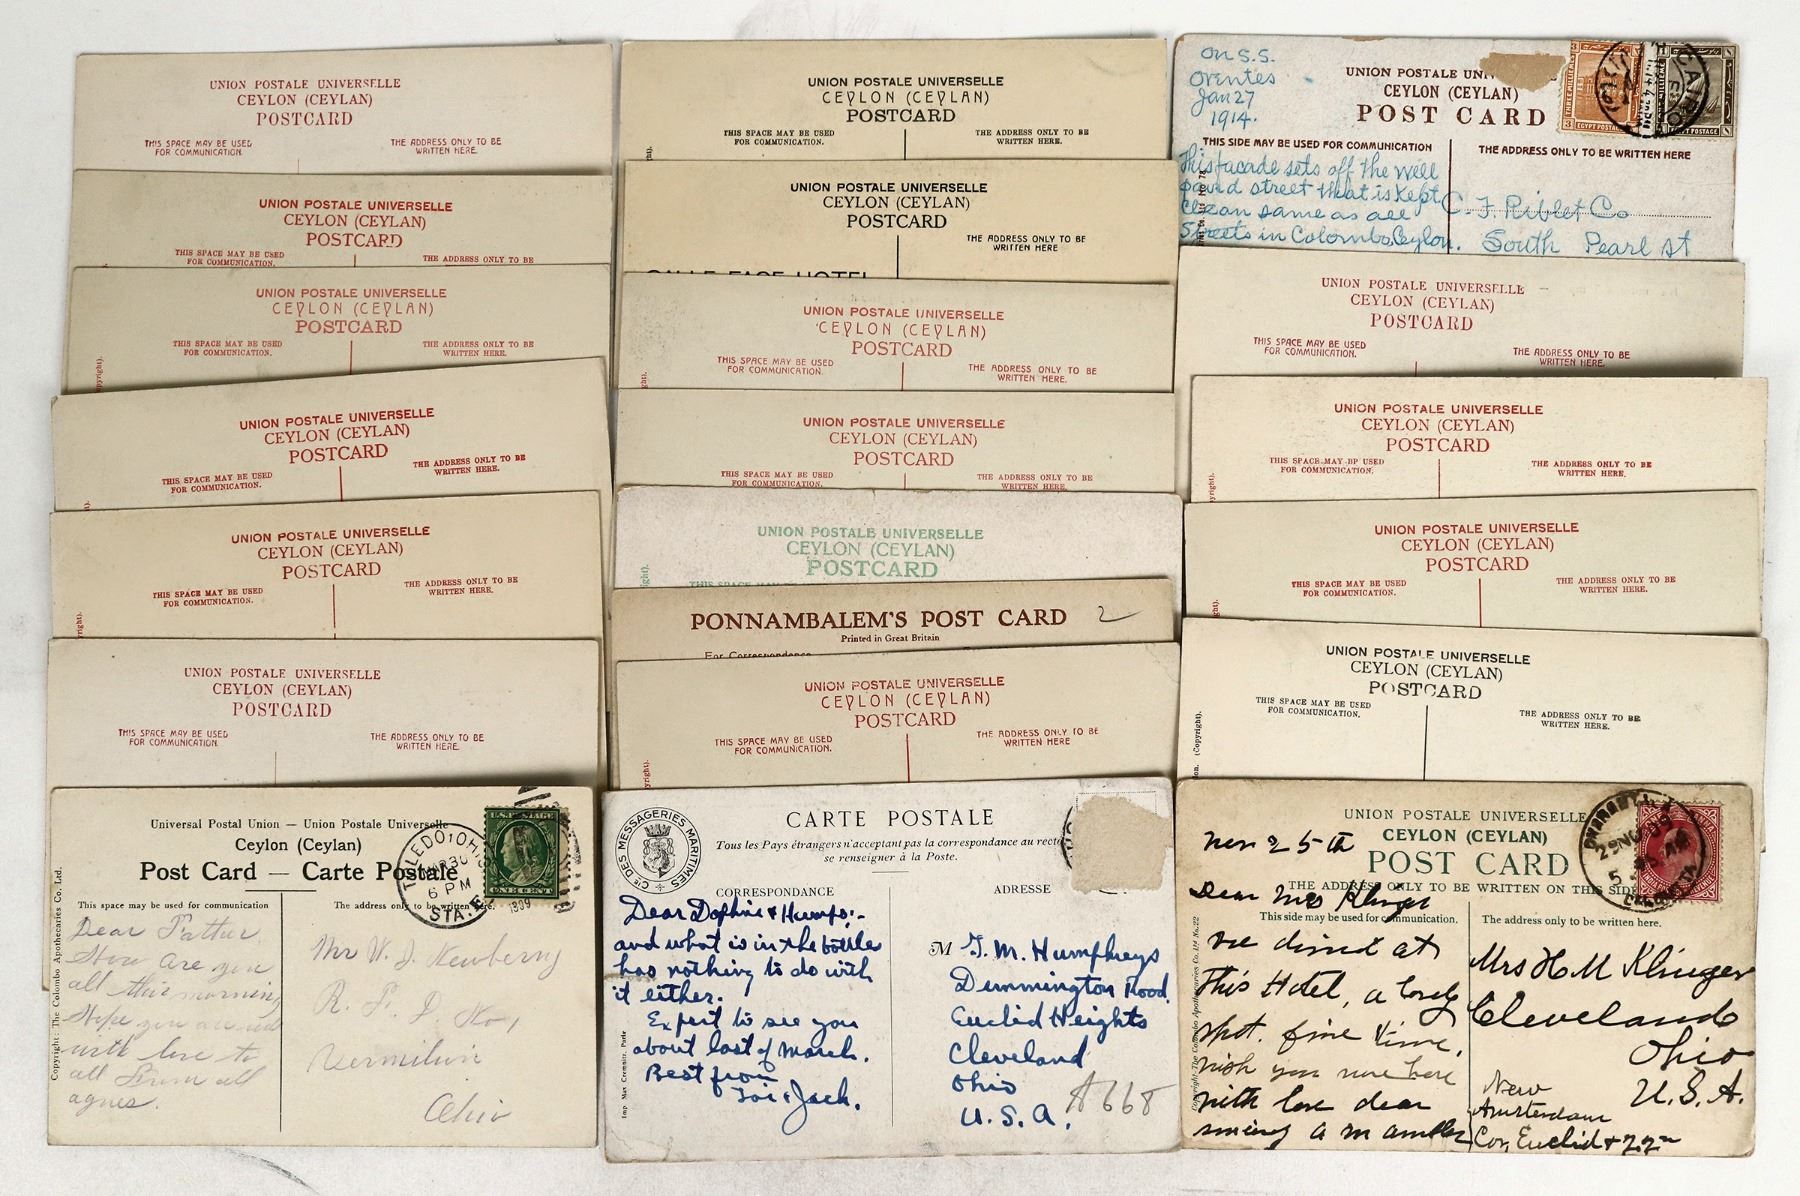 UNION POSTALE UNIVERSELLE
CEYLON (CEYLAN)
POSTCARD
THIS SPACE MAY BE USED
FOR COMMUNICATION.
THE ADDRESS ONLY TO BE
WRITTEN HERE.
UNION POSTALE UNIVERSELLE
CEYLON (CEYLAN)
POSTCARD
THIS SPACE MAY BE USED
FOR COMMUNICATION.
THE ADDRESS ONLY TO BE
UNION POSTALE UNIVERSELLE
CEYLON (CEYLAN)
POSTCARD
THIS SPACE MAY BE USED
FOR COMMUNICATION.
THE ADDRESS ONLY TO BE
WRITTEN HERE.
pyright).
UNION POSTALE UNIVERSELLE
CEYLON (CEYLAN)
POSTCARD
THIS SPACE MAY BE USED
FOR COMMUNICATION.
THE ADDRESS ONLY TO BE
WRITTEN HERE.
UNION POSTALE UNIVERSELLE
CEYLON (CEYLAN)
POSTCARD
THIS SPACE MAY BE USED
FOR COMMUNICATION.
THE ADDRESS ONLY TO BE
WRITTEN HERE.
right).
UNION POSTALE UNIVERSELLE
CEYLON (CEYLAN)
POSTCARD
THIS SPACE MAY BE USED
FOR COMMUNICATION.
THE ADDRESS ONLY TO BE
WRITTEN HERE.
Universal Postal Union — Union Postale Universelle
Ceylon (Ceylan)
Post Card — Carte Postale
This space may be used for communication
The address only to be written here.
Copyright: The Colombo Apothecaries Co. Ltd.
TOLEDO, OHIO
MAR 30
6 PM
STA. E
1909
U.S. POSTAGE
ONE CENT
Dear Father
How are you
all this morning
Hope you are well
with love to
all from all
agnes.
Mr W. J. Newberry
R. F. D. No 1
Vermilion
Ohio
UNION POSTALE UNIVERSELLE
CEYLON (CEYLAN)
POSTCARD
THIS SPACE MAY BE USED
FOR COMMUNICATION.
THE ADDRESS ONLY TO BE
WRITTEN HERE.
UNION POSTALE UNIVERSELLE
CEYLON (CEYLAN)
POSTCARD
THE ADDRESS ONLY TO BE
WRITTEN HERE
GALLE FACE HOTEL
UNION POSTALE UNIVERSELLE
CEYLON (CEYLAN)
POSTCARD
THIS SPACE MAY BE USED
FOR COMMUNICATION.
THE ADDRESS ONLY TO BE
WRITTEN HERE.
UNION POSTALE UNIVERSELLE
CEYLON (CEYLAN)
POSTCARD
THIS SPACE MAY BE USED
FOR COMMUNICATION.
THE ADDRESS ONLY TO BE
WRITTEN HERE.
UNION POSTALE UNIVERSELLE
CEYLON (CEYLAN)
POSTCARD
PONNAMBALEM'S POST CARD
2
Printed in Great Britain
For Correspondence
UNION POSTALE UNIVERSELLE
CEYLON (CEYLAN)
POSTCARD
THIS SPACE MAY BE USED
FOR COMMUNICATION.
THE ADDRESS ONLY TO BE
WRITTEN HERE
yright).
CIE DES MESSAGERIES MARITIMES
CARTE POSTALE
Tous les Pays étrangers n'acceptant pas la correspondance au recto
se renseigner à la Poste.
CORRESPONDANCE
ADRESSE
Imp. Max Cremnitz, Paris
Dear Daphne & Humps:-
and what is in the bottle
has nothing to do with
it either.
Expect to see you
about last of March.
Best from
Toi & Jack.
M
G. M. Humphreys
Dunnington Road
Euclid Heights
Cleveland
Ohio
U.S.A.
A668
on S.S.
Orontes
Jan 27
1914.
UNION POSTALE UN
CEYLON (CEYLAN)
POST CARD
THIS SIDE MAY BE USED FOR COMMUNICATION
THE ADDRESS ONLY TO BE WRITTEN HERE
CAIRO
EGYPT POSTAGE
This facade sets off the well
paved street that is kept
clean same as all
streets in Colombo, Ceylon.
C. F. Riblet Co
South Pearl st
UNION POSTALE UNIVERSELLE
CEYLON (CEYLAN)
POSTCARD
THIS SPACE MAY BE USED
FOR COMMUNICATION.
THE ADDRESS ONLY TO BE
WRITTEN HERE.
UNION POSTALE UNIVERSELLE
CEYLON (CEYLAN)
POSTCARD
THIS SPACE MAY BE USED
FOR COMMUNICATION.
THE ADDRESS ONLY TO BE
WRITTEN HERE.
yright).
UNION POSTALE UNIVERSELLE
CEYLON (CEYLAN)
POSTCARD
THIS SPACE MAY BE USED
FOR COMMUNICATION.
THE ADDRESS ONLY TO BE
WRITTEN HERE.
right).
UNION POSTALE UNIVERSELLE
CEYLON (CEYLAN)
POSTCARD
THIS SPACE MAY BE USED
FOR COMMUNICATION.
THE ADDRESS ONLY TO BE
WRITTEN HERE.
on. (Copyright).
UNION POSTALE UNIVERSELLE
CEYLON (CEYLAN)
POST CARD
THE ADDRESS ONLY TO BE WRITTEN ON THIS SIDE
This side may be used for communication.
The address only to be written here.
Copyright-The Colombo Apothecaries Co. Ltd No.22
Nov 25th
Dear Mrs Klinger
we dined at
This Hotel, a lovely
spot. fine time.
wish you were here
with love dear
Mrs H M Klinger
Cleveland
Ohio
U.S.A.
New
Amsterdam
Cor, Euclid & 22nd